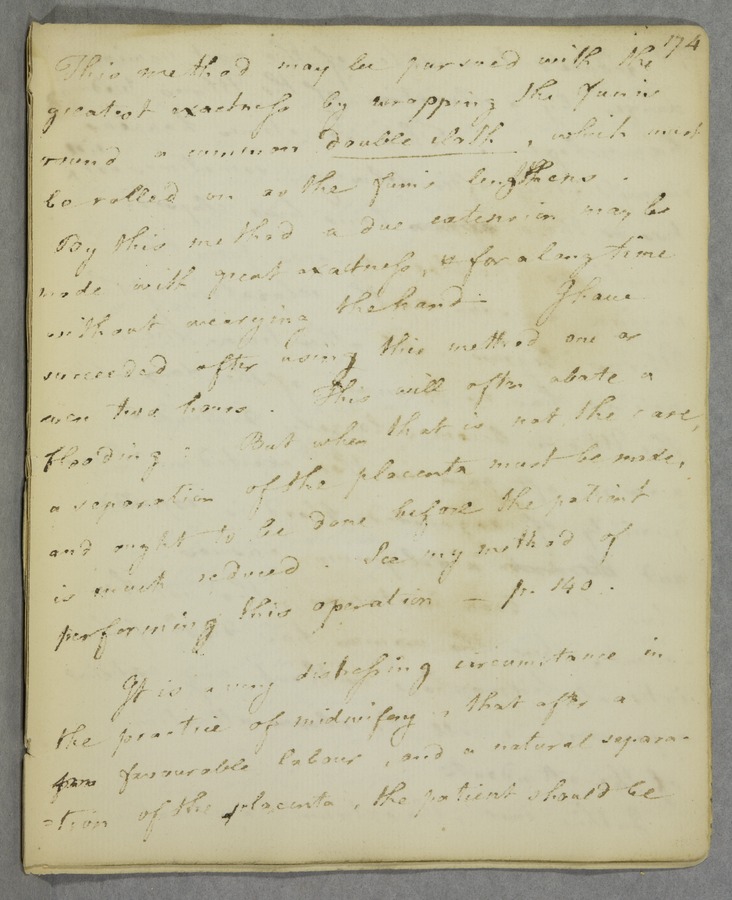 174
This method may be pursued with the
greatest exactness by wrapping the funis
round a common double cloth, which must
be rolled on as the funis lengthens.
By this method a due extension may be
made with great exactness, & for a long time
without wearying the hand. I have
succeeded after using this method one or
even two hours. This will often abate a
flooding: But when that is not the case,
a separation of the placenta must be made,
and ought to be done before the patient
is much reduced. See my method of
performing this operation — p. 140.
It is a very distressing circumstance in
the practice of midwifery, that after a
favourable labour, and a natural separa-
=tion of the placenta, the patient should be